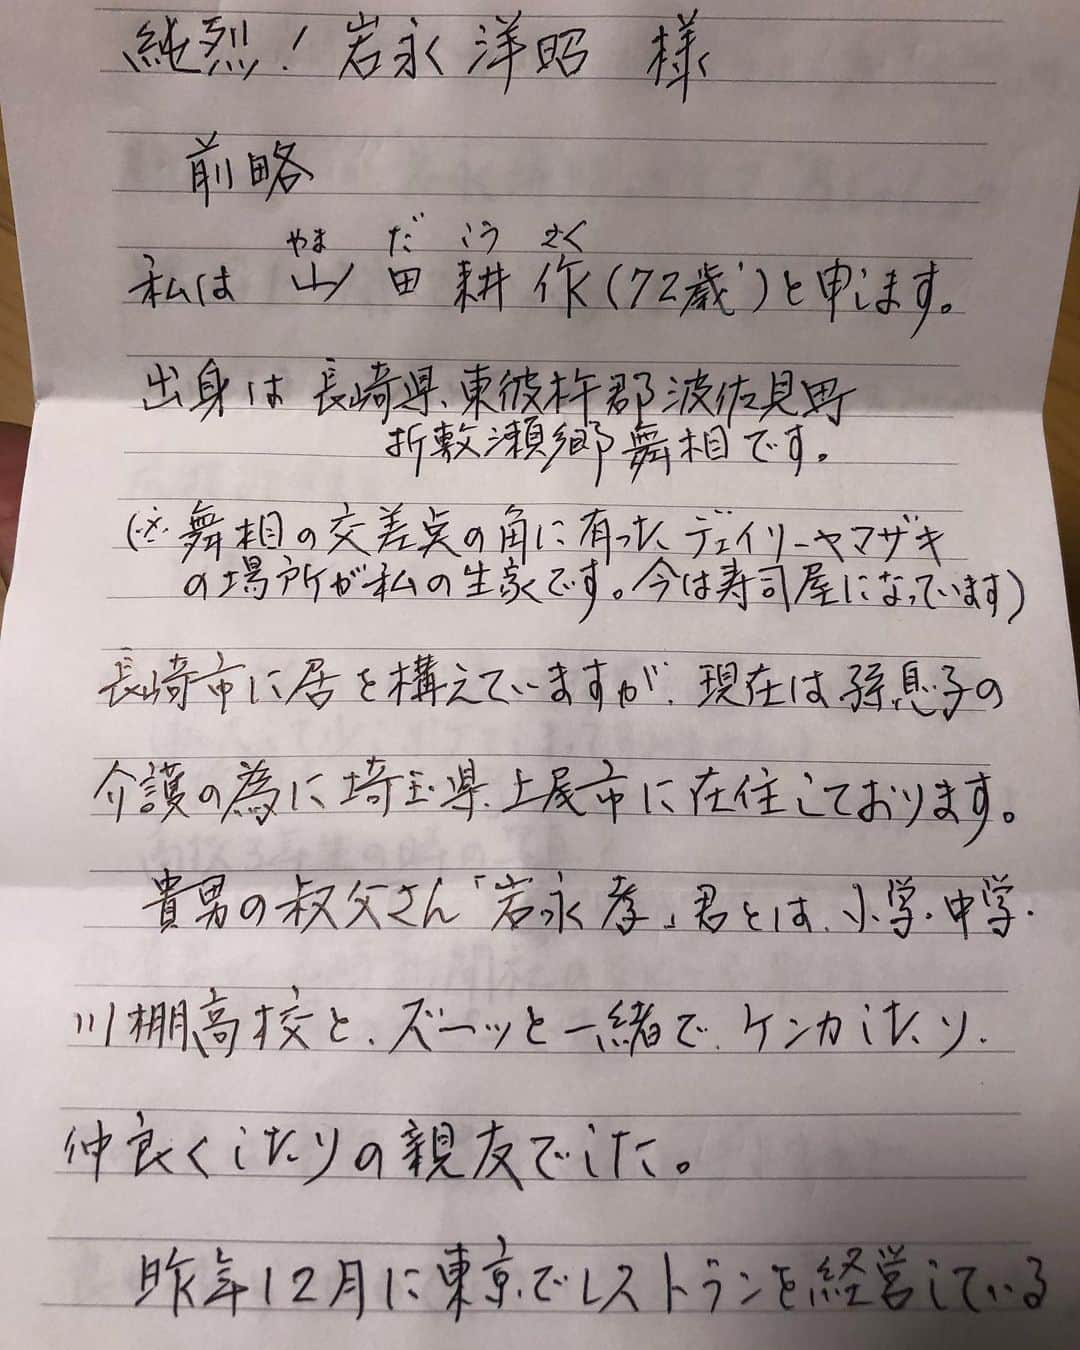 純烈！岩永洋昭 様
前略
やま だ こう さく
私は 山田耕作（72歳）と申します。
出身は長崎県、東彼杵郡波佐見町
折敷瀬郷舞相です。
（※舞相の交差点の角に有ったデェイリーヤマザキ
の場所が私の生家です。今は寿司屋になっています）
長崎市に居を構えていますが、現在は孫息子の
介護の為に埼玉県、上尾市に在住しております。
貴男の叔父さん「岩永孝」君とは、小学・中学・
川棚高校と、ズーッと一緒で、ケンカしたり、
仲良くしたりの親友でした。
昨年12月に東京でレストランを経営している